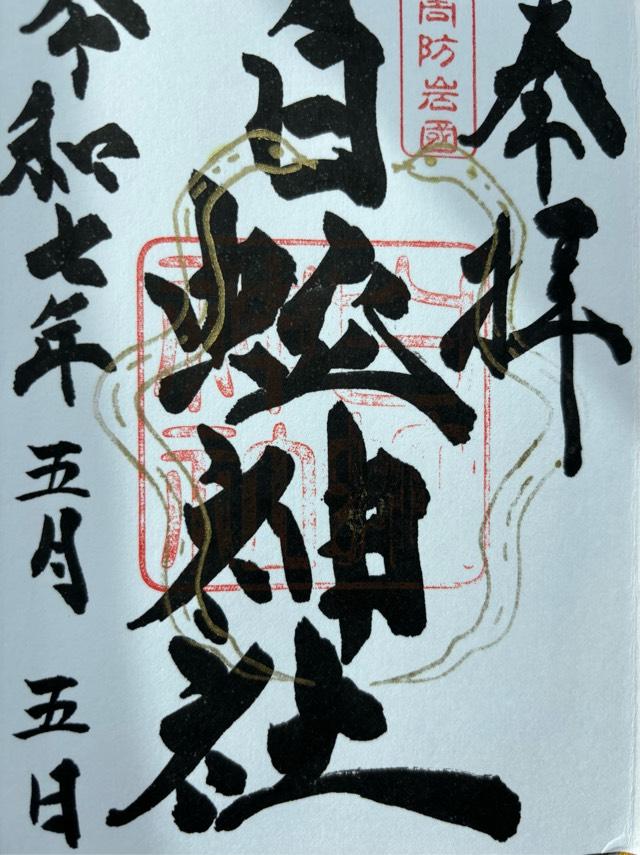 奉拝
周防岩國
白蛇神社
令和七年五月五日